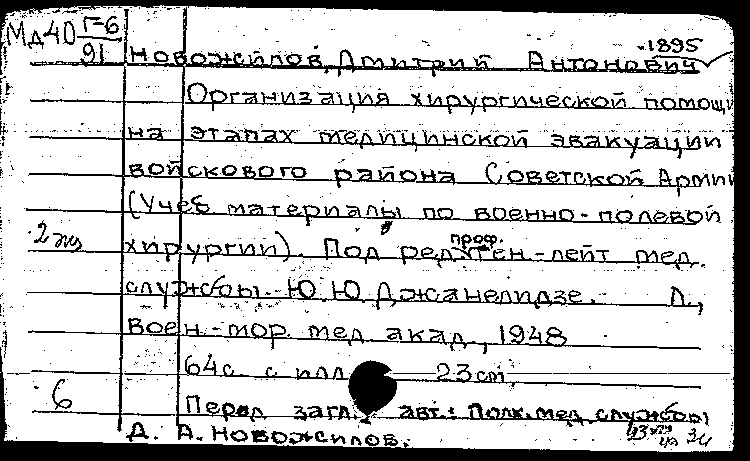 Мд40 Г-6
91
1895
Новожилов, Дмитрий Антонович
Организация хирургической помощи
на этапах медицинской эвакуации
войскового района Советской Армии
(Учеб материалы по военно-полевой
2 экз
хирургии). Под ред. проф. ген-лейт мед.
службы Ю Ю Джанелидзе. Л.,
Воен-мор. мед акад., 1948
64с. с илл 23 cm.
6
Перед загл. авт.: Полк. мед. службы
Д. А. Новожилов.